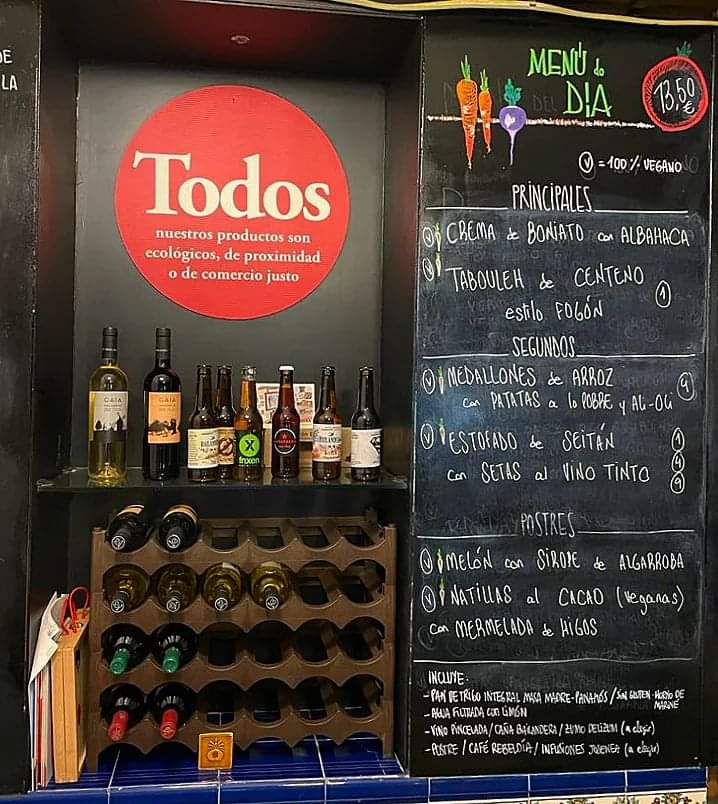 DE
LA
Todos
nuestros productos son
ecológicos, de proximidad
o de comercio justo
GAIA
GAIA
MENÚ do
DÍA
13,50
€
Ⓥ = 100% VEGANO
PRINCIPALES
Ⓥ CREMA de BONIATO con ALBAHACA
Ⓥ TABOULEH de CENTENO ①
estilo FOGÓN
SEGUNDOS
Ⓥ MEDALLONES de ARROZ
con PATATAS a lo POBRE y AL-OLI
Ⓥ ESTOFADO de SEITÁN ①
con SETAS al VINO TINTO ④
⑨
POSTRES
Ⓥ MELÓN con SIROPE de ALGARROBA
Ⓥ NATILLAS al CACAO (veganas)
con MERMELADA de HIGOS
INCLUYE:
- PAN DE TRIGO INTEGRAL MASA MADRE-PANAMÓS / SIN GLUTEN-HORNO DE
- AGUA FILTRADA con LIMÓN
- VINO PINCELADA / CAÑA BAILANDERA / ZUMO DELIZUM (a elegir)
- POSTRE / CAFÉ REBELDÍA / INFUSIONES JOVENEA (a elegir)